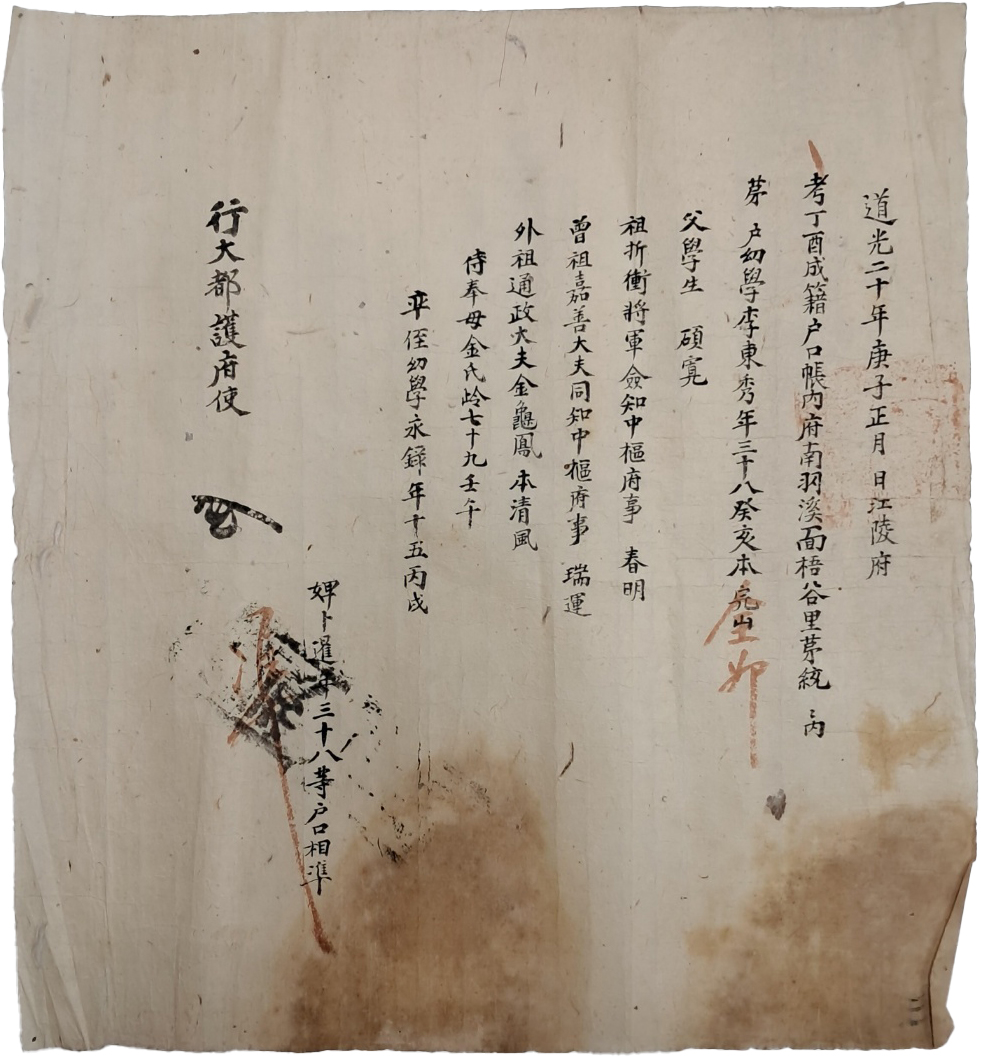 道光二十年庚子正月 日江陵府
考丁酉成籍户口帳內府南羽溪面梧谷里苐統 內
苐 户幼學李東秀年三十八癸亥本完山
父學生 碩寬
祖折衝將軍僉知中樞府事 春明
曾祖嘉善大夫同知中樞府事 瑞運
外祖通政大夫金龜鳳 本清風
侍奉母金氏岭七十九壬午
率侄幼學永錄年十五丙戌
婢卜暹年三十八等户口相準
行大都護府使